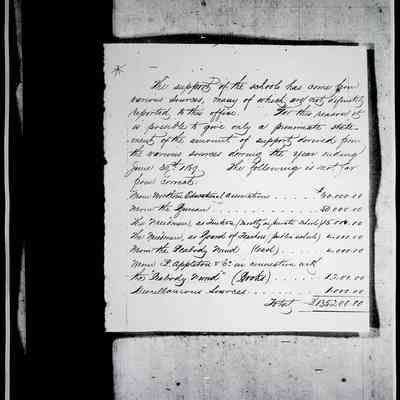 The support of the schools has come from
various sources, many of which are not definitely
reported to this office. For this reason it
is possible to give only a proximate state-
ment of the amount of support derived from
the various sources during the year ending
June 30th 186. The following is not far
from correct.
From Northern Educational Associations . . . $ 00.00
From the Bureau . . . . 50.000.00
The Freedmen, as Tuition (mostly in private schools) 15
The Freedmen, as Board of Teachers (public schools) .000.00
From the Peabody Fund (Cash) . . . .000.00
From D. Appleton & Co. in connection with
the "Peabody Fund" (Books) . . . . 1.200.00
Miscellaneous Sources . . . . . 1.000.00
Total $135200.00